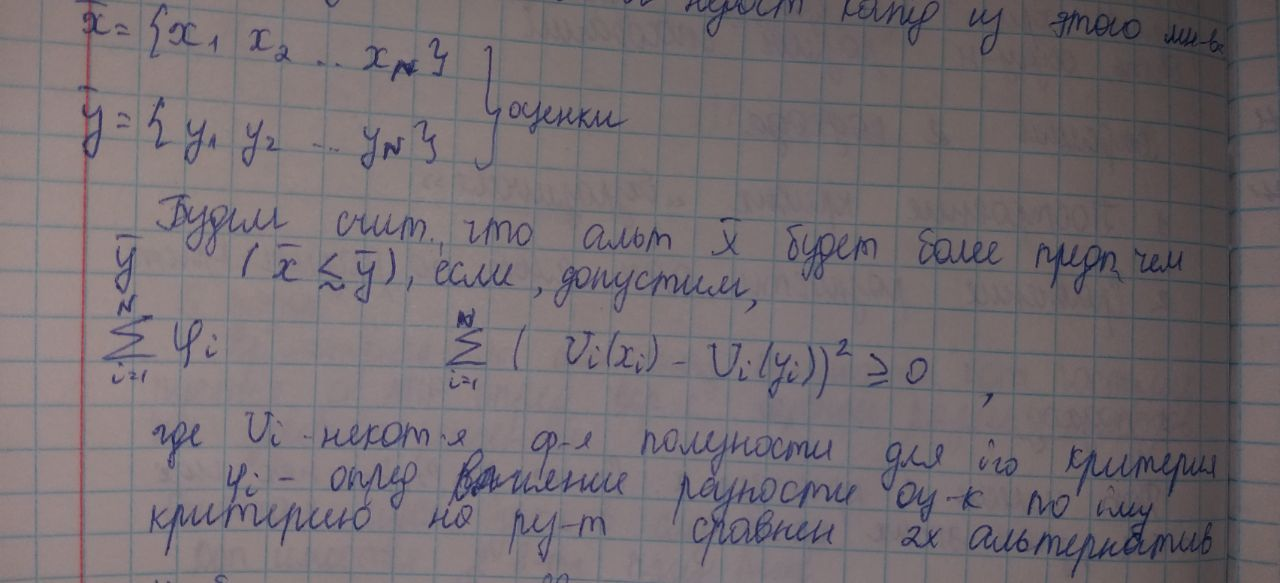 из этого мн-ва
x̄ = {x₁ x₂ ... x_N}
ȳ = {y₁ y₂ ... y_N} } оценки
Будем счит, что альт x̄ будет более предп, чем
ȳ (x̄ ≲ ȳ), если, допустим,
∑_{i=1}^{N} φi ∑_{i=1}^{N} (Vi(xi) - Vi(yi))² ≥ 0 ,
где Vi - некот-я ф-я полезности для iго критерия
φi - опред влияние разности оц-к по iму
критерию на рез-т сравнен 2х альтернатив